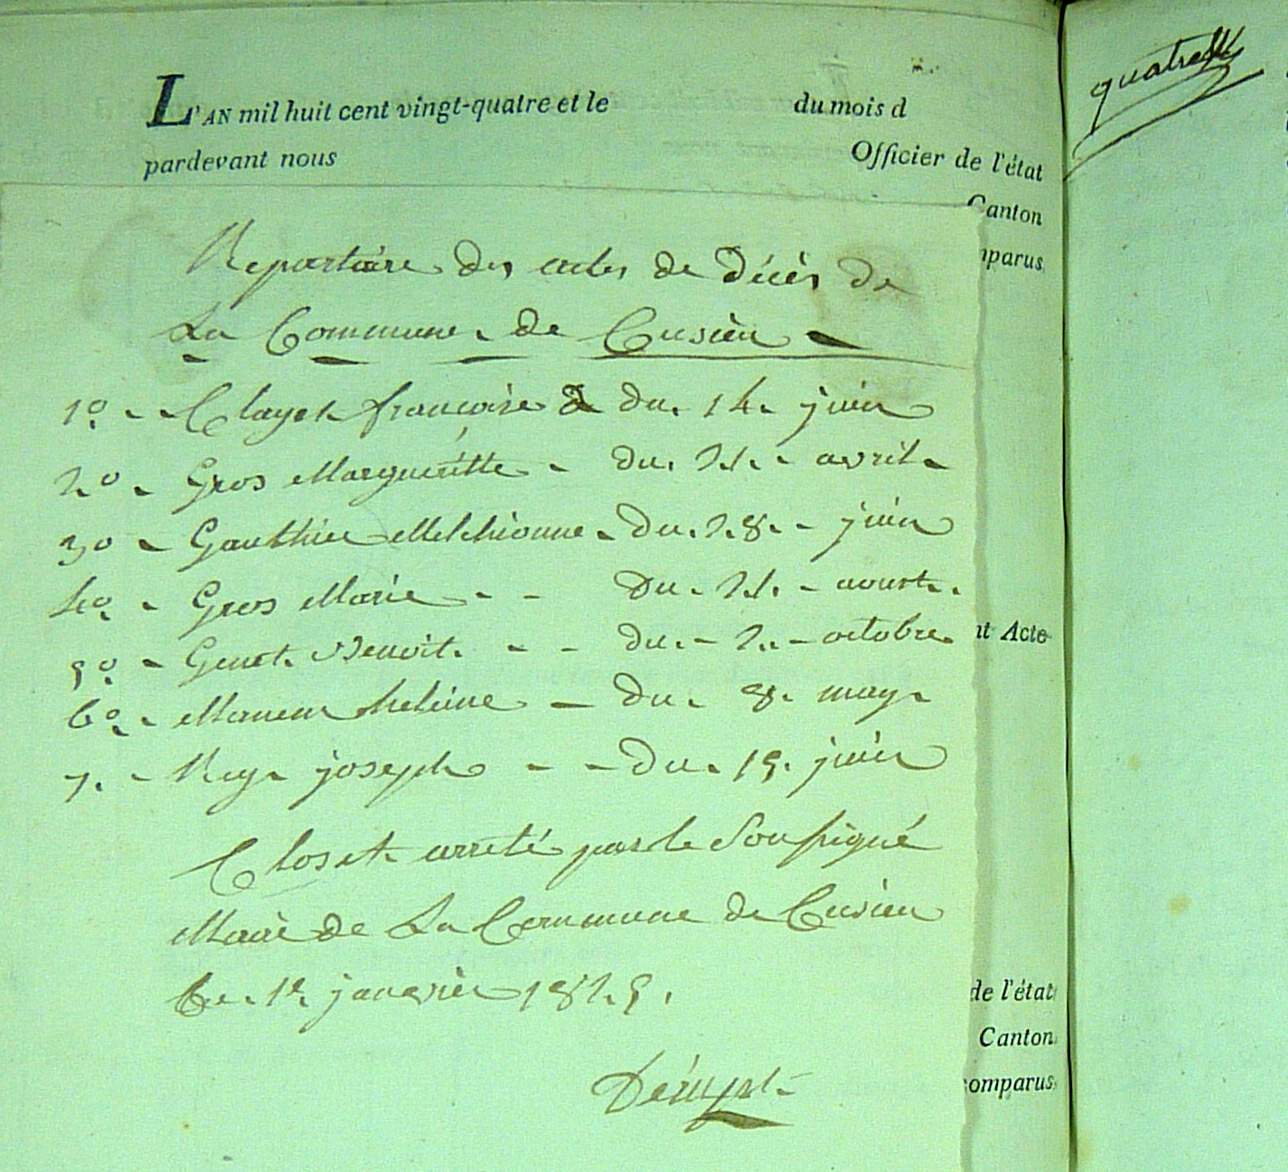 L'AN mil huit cent vingt-quatre et le du mois d
pardevant nous Officier de l'état
Canton
mparus
Repertoire des actes de Décès de
La Commune de Cusieu
1º - Clayet francoise du 14 juin
2º - Gros Marguéritte - du 21 - avril
3º - Gauthier Melchionne - du 28 - juin
4º - Gros Marie - - du 21 - aoust
nt Acte
5º - Genet Benoit - - du - 2 - octobre
6º - heleine - du 8 may
7 - Rey joseph - - du 15 juin
Clos et arreté par le Soussigné
Maire de La Commune de Cusieu
Ce 1er janvier 1825.
de l'état
Canton
comparus